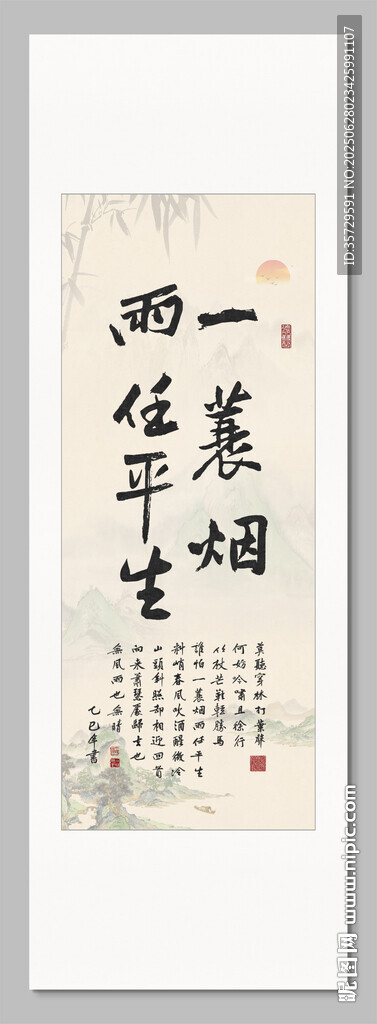 一蓑烟
雨任平生
莫聽穿林打葉聲
何妨吟嘯且徐行
竹杖芒鞋輕勝馬
誰怕一蓑烟雨任平生
料峭春風吹酒醒微冷
山頭斜照却相迎回首
向来蕭瑟處歸去也
無風雨也無晴
乙巳年書
ID:35729591 NO:20250628023425991107
昵图网 www.nipic.com